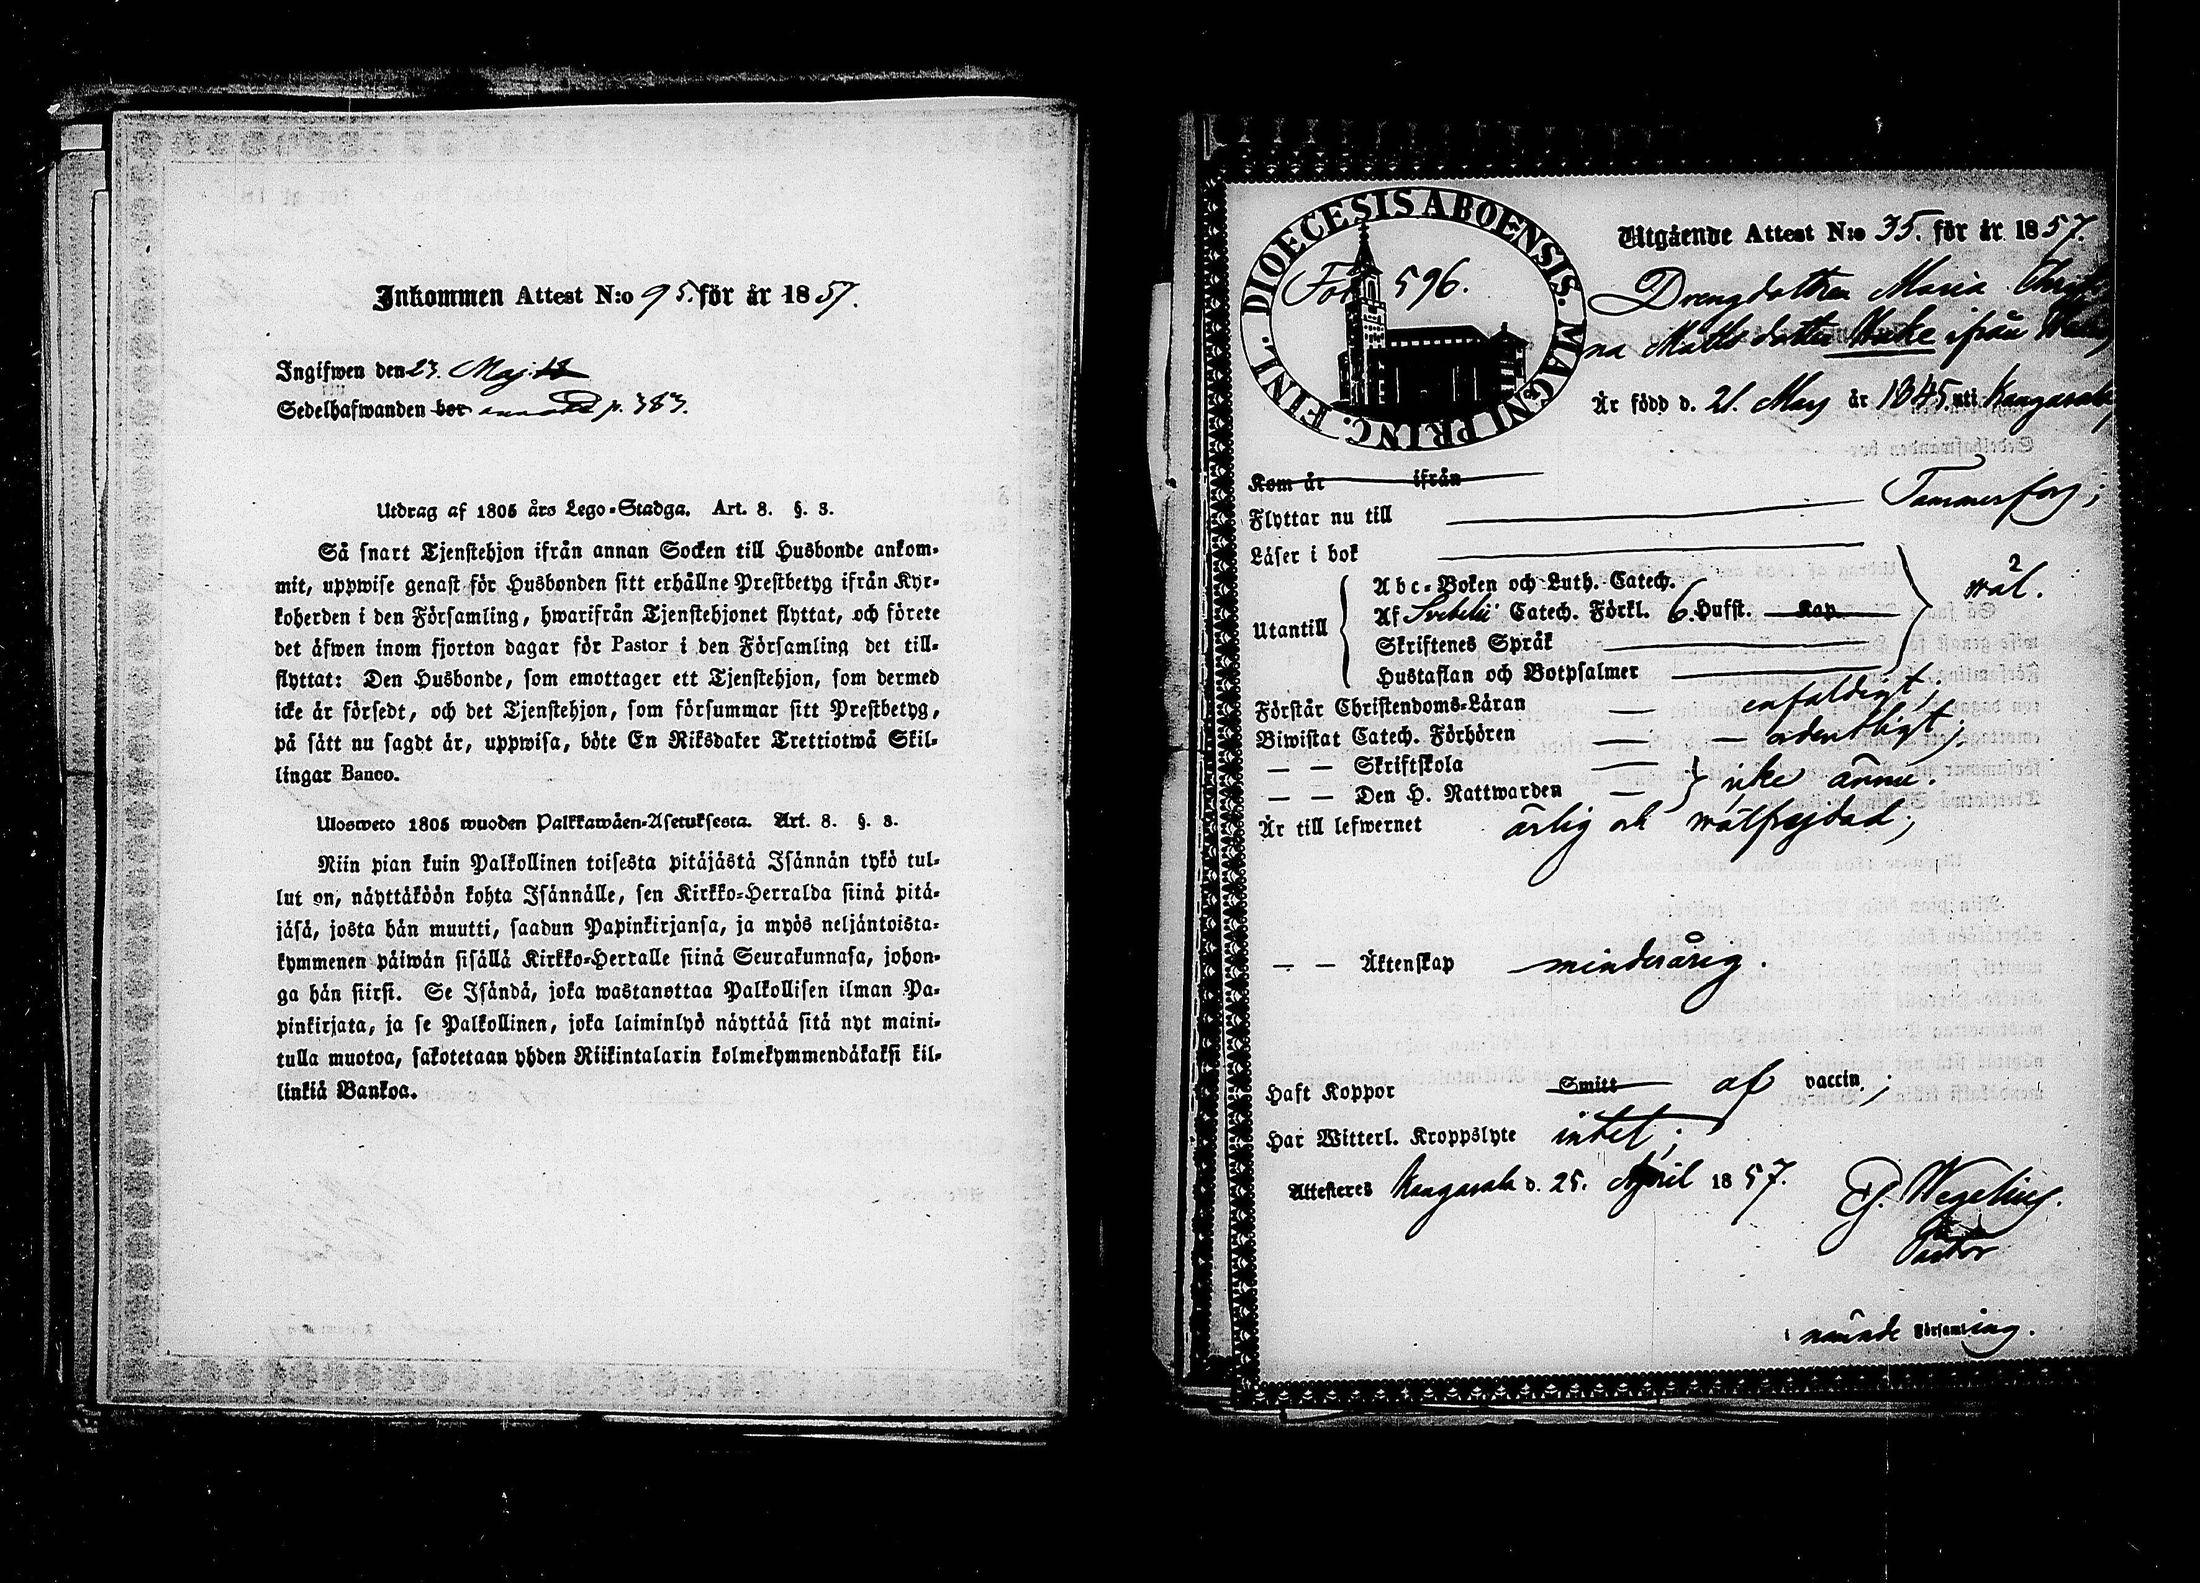 Inkommen Attest N:o 95. för år 1857.
Ingifwen den 23. Maj
Sedelhafwanden bor annotd p. 383.
Utdrag af 1805 års Lego-Stadga. Art. 8. §. 3.
Så snart Tjenstehjon ifrån annan Socken till Husbonde ankom-
mit, uppwise genast för Husbonden sitt erhållne Prestbetyg ifrån Kyr-
koherden i den Församling, hwarifrån Tjenstehjonet flyttat, och förete
det äfwen inom fjorton dagar för Pastor i den Församling det till-
flyttat: Den Husbonde, som emottager ett Tjenstehjon, som dermed
icke är försedt, och det Tjenstehjon, som försummar sitt Prestbetyg,
på sätt nu sagdt är, uppwisa, böte En Riksdaler Trettiotwå Skil-
lingar Banco.
Ulosweto 1805 wuoden Palkkawäen-Asetuksesta. Art. 8. §. 3.
Niin pian kuin Palkollinen toisesta pitäjästä Isännän tykö tul-
lut on, näyttäköön kohta Isännälle, sen Kirkko-Herralda siinä pitä-
jäsä, josta hän muutti, saadun Papinkirjansa, ja myös neljäntoista-
kymmenen päiwän sisällä Kirkko-Herralle siinä Seurakunnasa, johon-
ga hän siirsi. Se Isändä, joka wastanottaa Palkollisen ilman Pa-
pinkirjata, ja se Palkollinen, joka laiminlyö näyttää sitä nyt maini-
tulla muotoa, sakotetaan yhden Riikintalarin kolmekymmendäkaksi kil-
linkiä Bankoa.
DIOECESIS ABOENSIS. MAGNI PRINC. FINL.
Fol 596.
Utgående Attest N:o 35. för år 1857.
Drengdottren Maria Christi
na Mattsdotter Uske ifrån
Är född d. 21. May år 1845. uti Kangasala
Kom år ifrån
Flyttar nu till Tammerfors;
Läser i bok
Utantill
Abc-Boken och Luth. Catech.
Af Svebelii Catech. Förkl. 6. Hufst. Kap
Skriftenes Språk
Hustaflan och Botpsalmer
2
wäl.
Förstår Christendoms-Läran enfaldigt;
Biwistat Catech. Förhören ordentligt;
— — Skriftskola
— — Den H. Nattwarden icke ännu.
Är till lefwernet ärlig och wälfrejdad;
— — Äktenskap minderårig.
Haft Koppor Smitt af vaccin;
Har Witterl. Kroppslyte intet;
Attesteres Kangasala d. 25. April 1857.
Wegelius.
Pastor
i nämnde Församling.